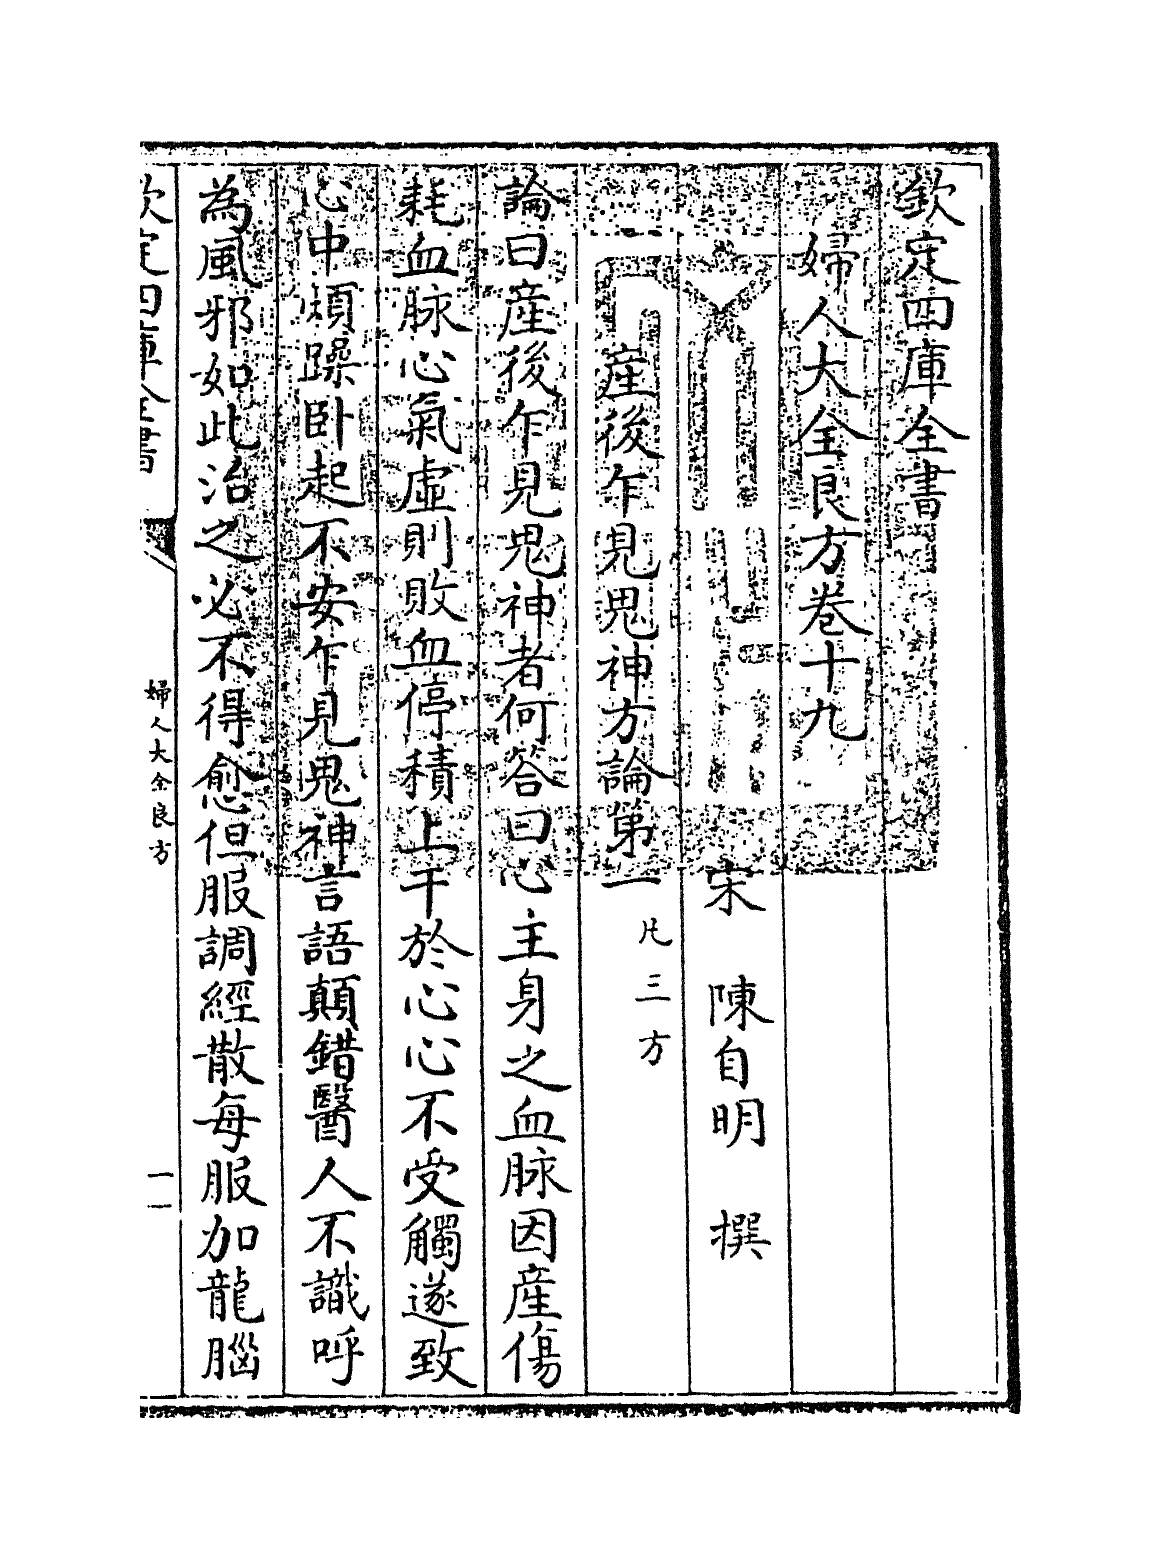 欽定四庫全書
婦人大全良方卷十九
宋　陳自明　撰
産後乍見鬼神方論第一凡三方
論曰産後乍見鬼神者何答曰心主身之血脉因産傷
耗血脉心氣虛則敗血停積上干於心心不受觸遂致
心中煩躁卧起不安乍見鬼神言語顛錯醫人不識呼
為風邪如此治之必不得愈但服調經散每服加龍腦
欽定四庫全書
婦人大全良方
一